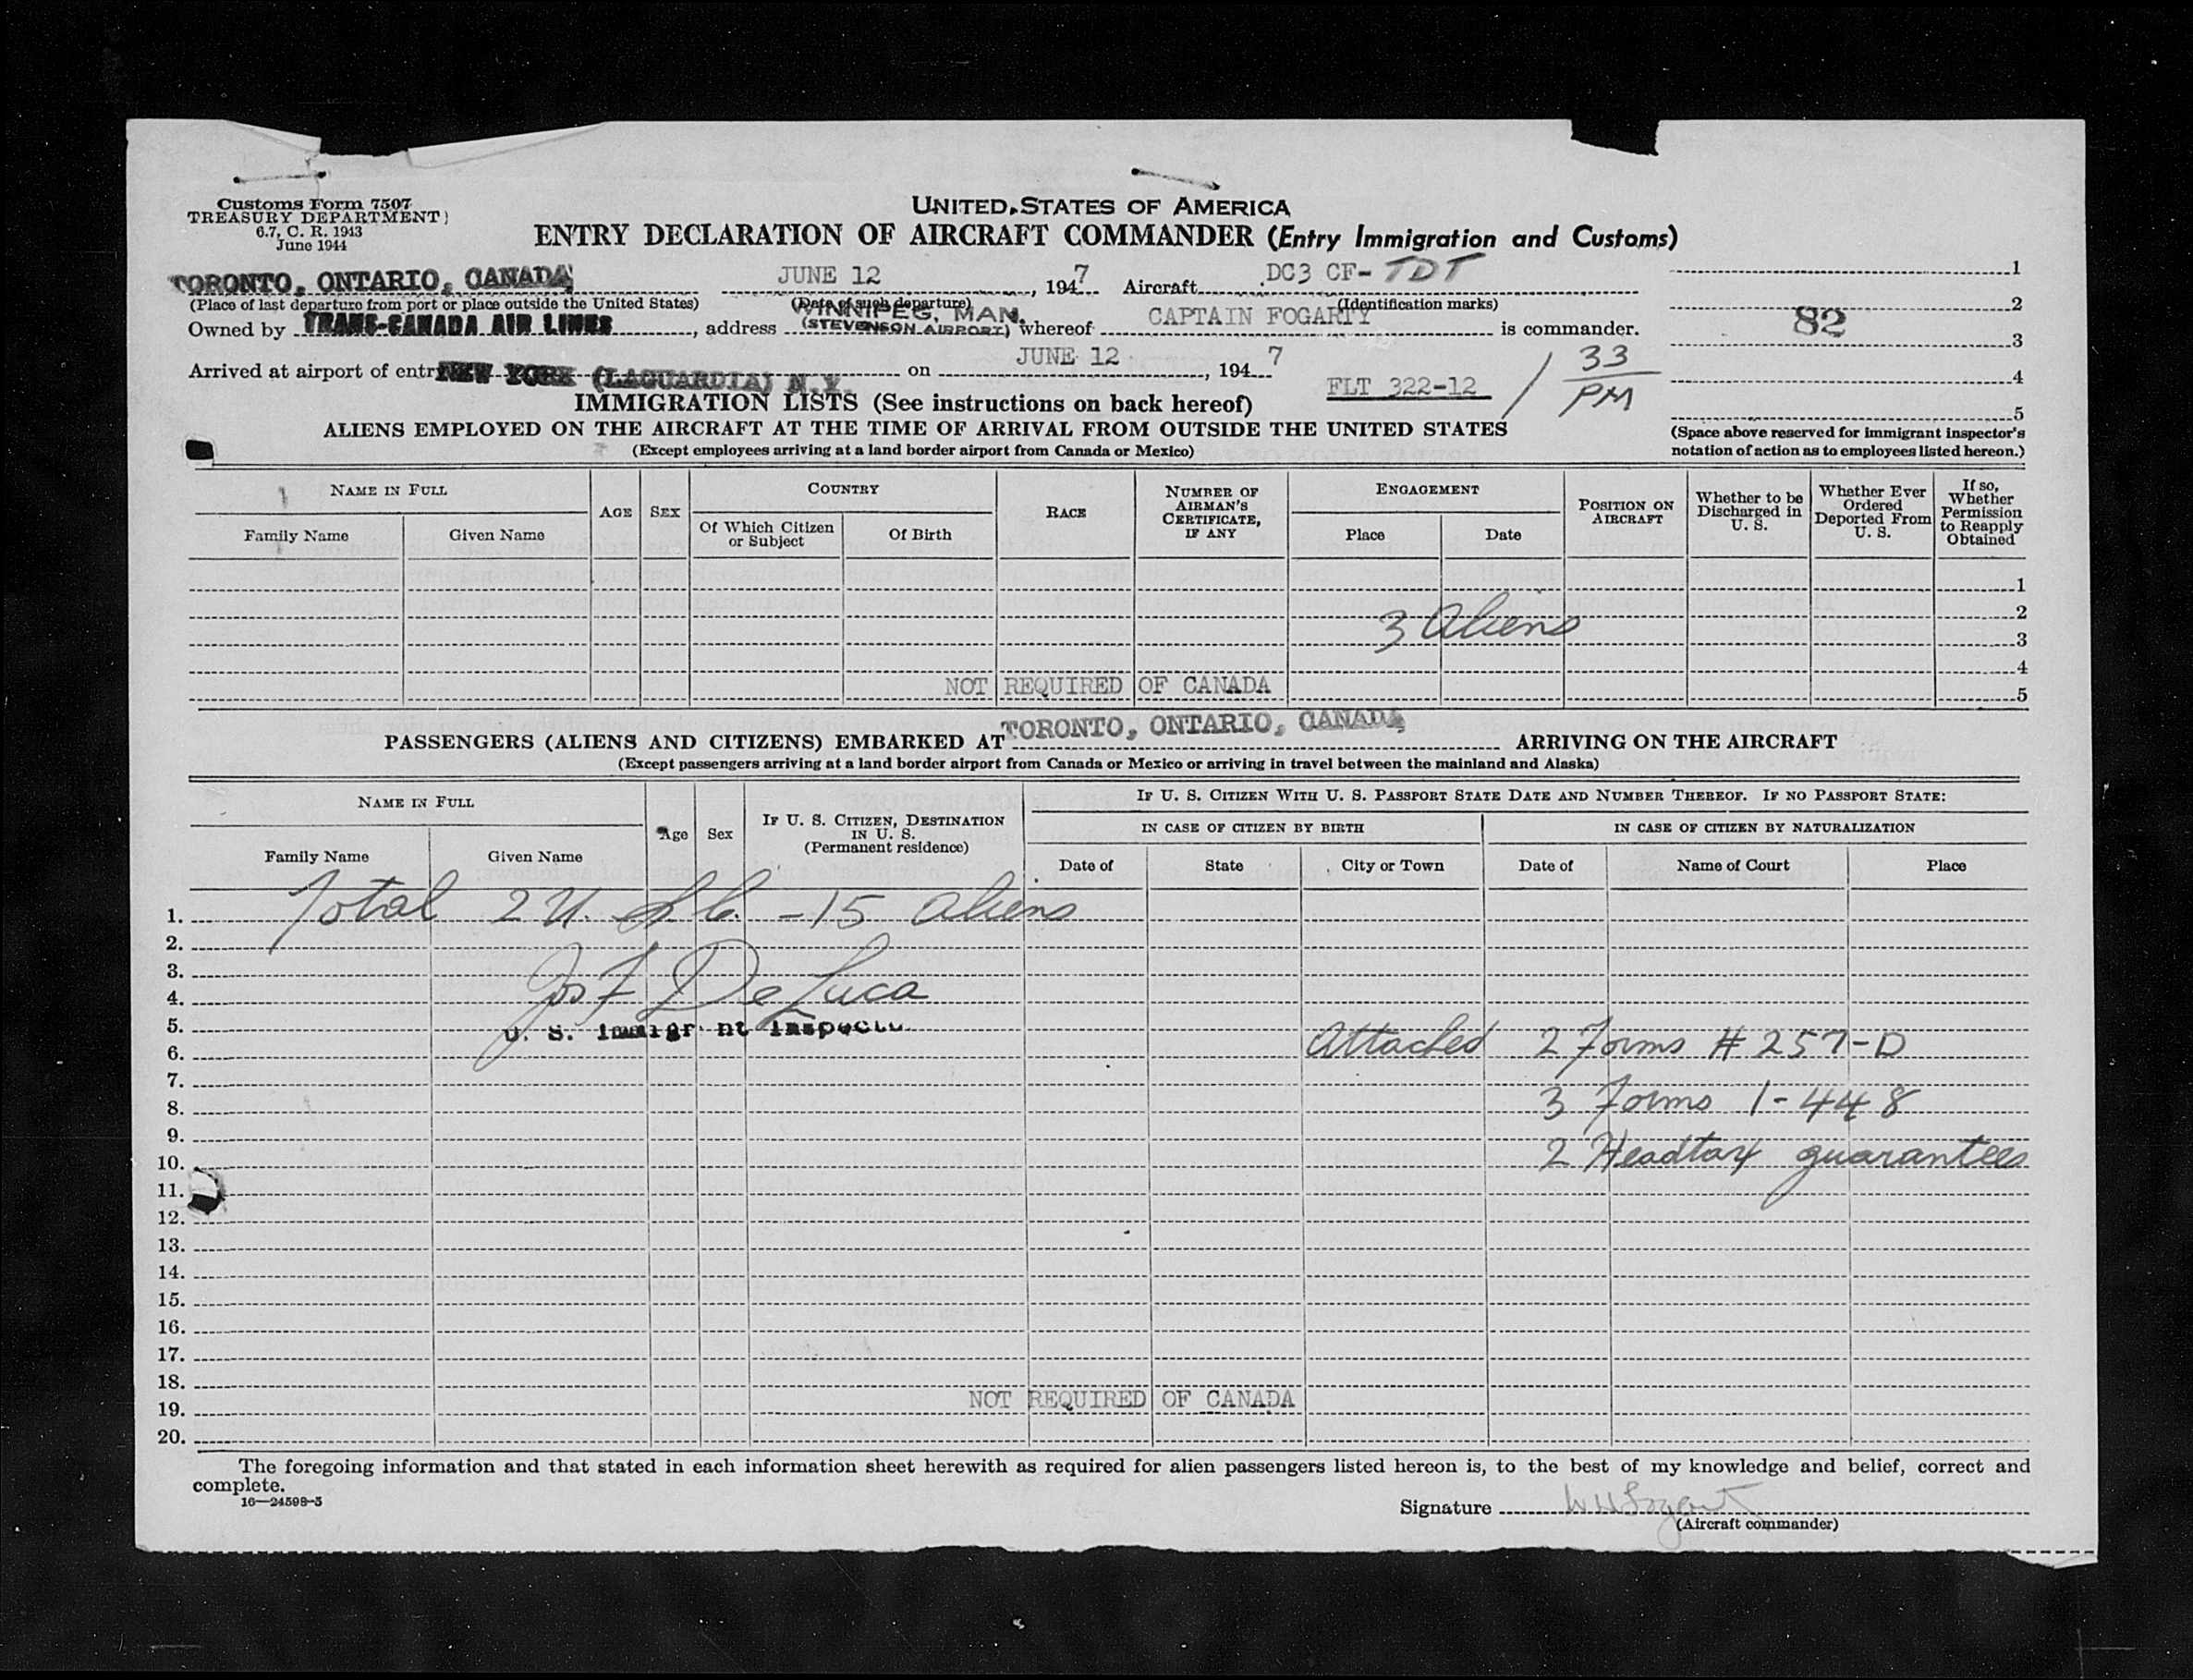 Customs Form 7507
TREASURY DEPARTMENT
6.7, C. R. 1943
June 1944
UNITED STATES OF AMERICA
ENTRY DECLARATION OF AIRCRAFT COMMANDER (Entry Immigration and Customs)
TORONTO, ONTARIO, CANADA JUNE 12, 1947 Aircraft DC3 CF-TDT 1
(Place of last departure from port or place outside the United States) (Date of such departure) (Identification marks) 2
Owned by TRANS-CANADA AIR LINES, address WINNIPEG, MAN. (STEVENSON AIRPORT) whereof CAPTAIN FOGARTY is commander. 82
3
Arrived at airport of entry NEW YORK (LAGUARDIA) N.Y. on JUNE 12, 1947 FLT 322-12 1 33 PM 4
IMMIGRATION LISTS (See instructions on back hereof)
5
ALIENS EMPLOYED ON THE AIRCRAFT AT THE TIME OF ARRIVAL FROM OUTSIDE THE UNITED STATES
(Except employees arriving at a land border airport from Canada or Mexico)
(Space above reserved for immigrant inspector's
notation of action as to employees listed hereon.)
NAME IN FULL
Family Name Given Name
AGE SEX
COUNTRY
Of Which Citizen or Subject Of Birth
RACE
NUMBER OF AIRMAN'S CERTIFICATE, IF ANY
ENGAGEMENT
Place Date
POSITION ON AIRCRAFT
Whether to be Discharged in U. S.
Whether Ever Ordered Deported From U. S.
If so, Whether Permission to Reapply Obtained
1
2
3 Aliens 3
4
NOT REQUIRED OF CANADA 5
PASSENGERS (ALIENS AND CITIZENS) EMBARKED AT TORONTO, ONTARIO, CANADA ARRIVING ON THE AIRCRAFT
(Except passengers arriving at a land border airport from Canada or Mexico or arriving in travel between the mainland and Alaska)
NAME IN FULL
Family Name Given Name
Age Sex
IF U. S. CITIZEN, DESTINATION IN U. S.
(Permanent residence)
IF U. S. CITIZEN WITH U. S. PASSPORT STATE DATE AND NUMBER THEREOF. IF NO PASSPORT STATE:
IN CASE OF CITIZEN BY BIRTH IN CASE OF CITIZEN BY NATURALIZATION
Date of State City or Town Date of Name of Court Place
1. Total 2 U. S. C. - 15 aliens
2.
3.
4. Jos F DeLuca
5. U. S. Immigr nt Inspecto
6. Attached 2 Forms # 257-D
7.
8. 3 Forms 1-448
9.
10. 2 Headtax guarantees
11.
12.
13.
14.
15.
16.
17.
18.
19. NOT REQUIRED OF CANADA
20.
The foregoing information and that stated in each information sheet herewith as required for alien passengers listed hereon is, to the best of my knowledge and belief, correct and
complete.
16—24598-5
Signature W H Fogarty
(Aircraft commander)